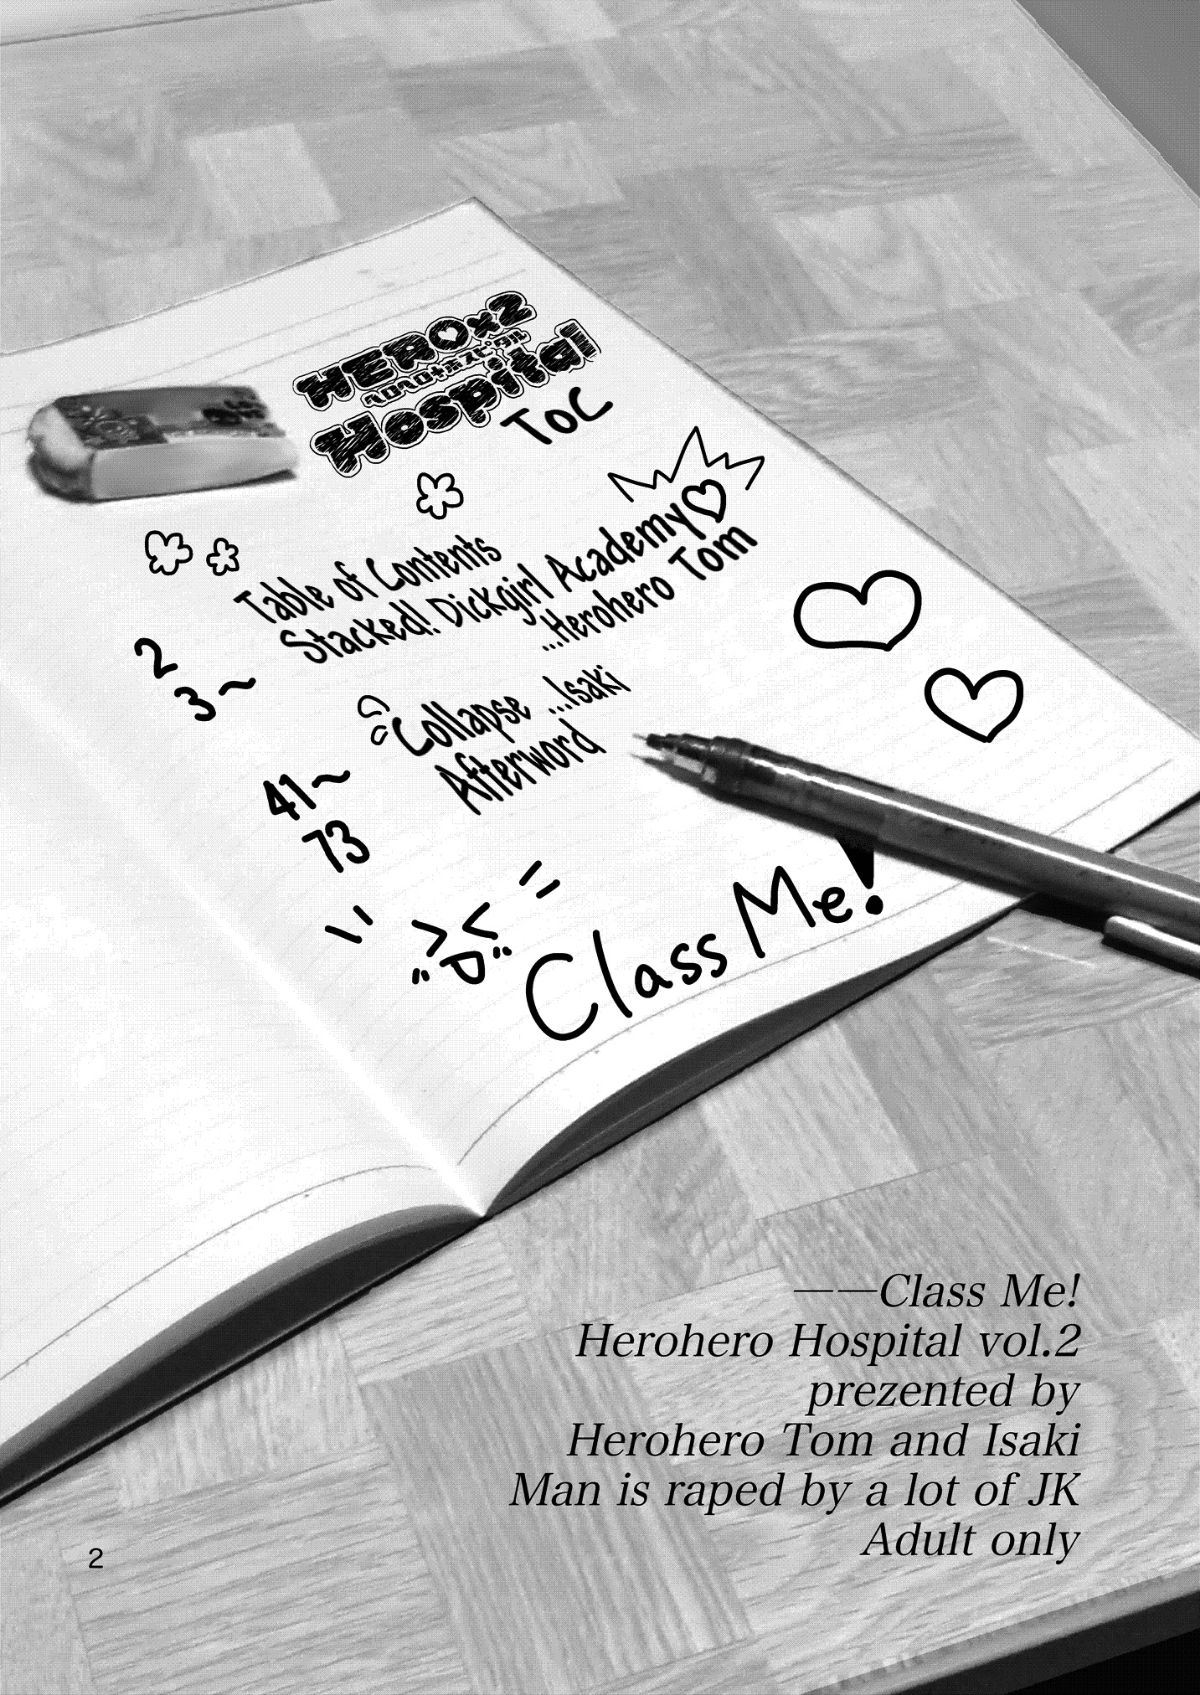 HEROx2
ヘロヘロ+ホスピタル
Hospital
TOC
Table of Contents
2
Stacked! Dickgirl Academy♡
...Herohero Tom
3~
Collapse ...Isaki
41~
Afterword
73
Class Me!
——Class Me!
Herohero Hospital vol.2
prezented by
Herohero Tom and Isaki
Man is raped by a lot of JK
Adult only
2